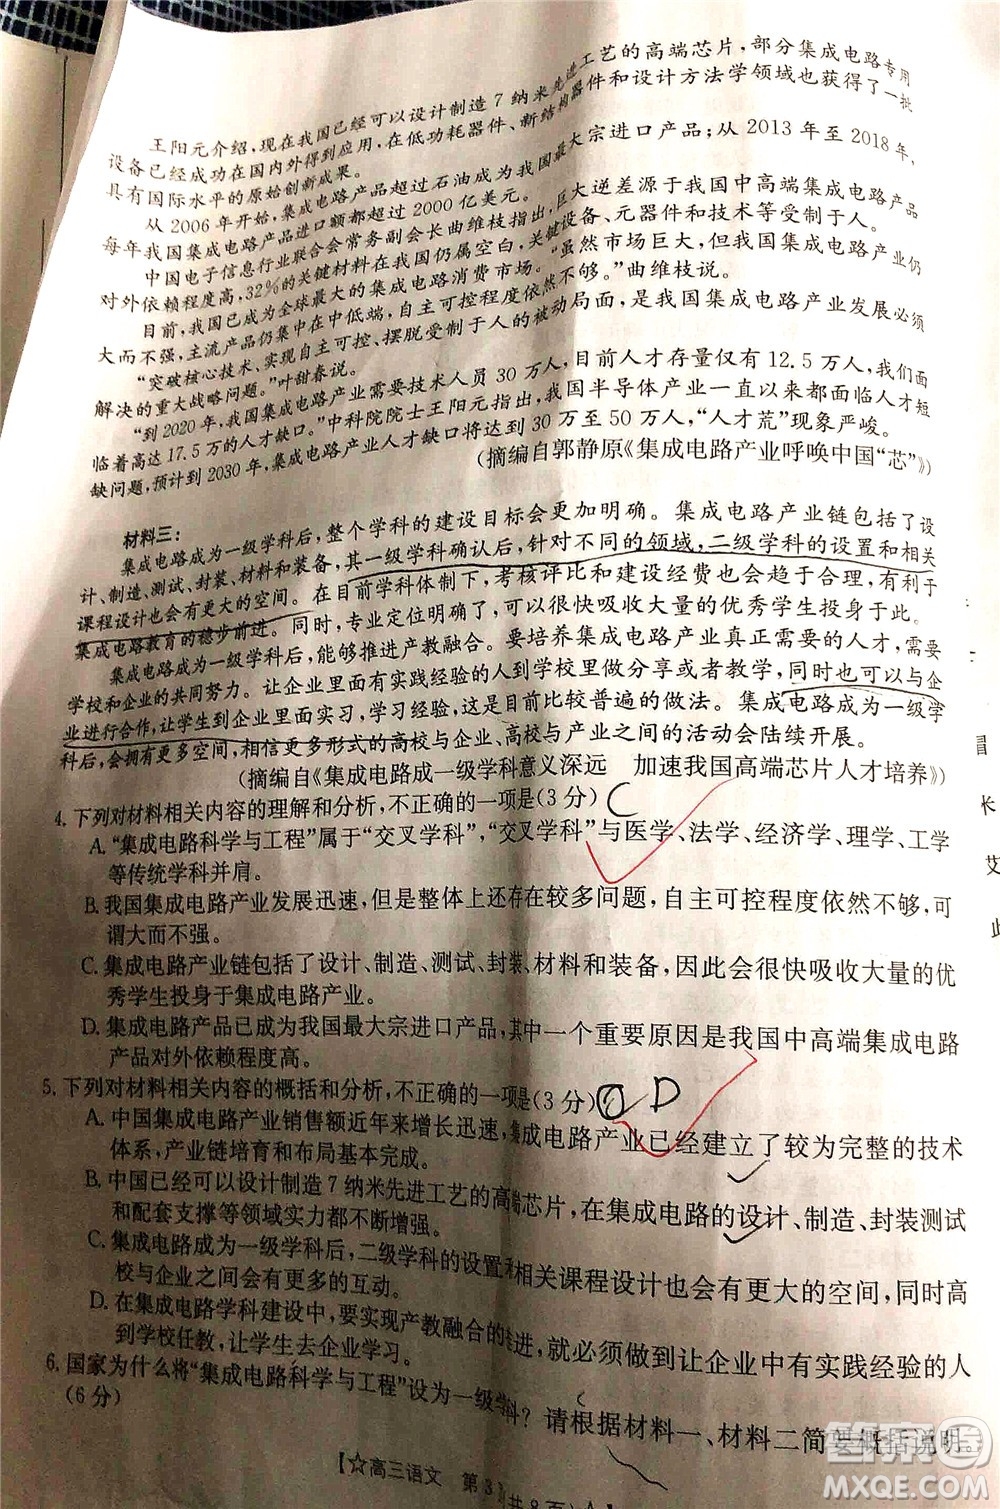 王阳元介绍，现在我国已经可以设计制造7纳米先进工艺的高端芯片，部分集成电路专用
设备已经成功在国内外得到应用，在低功耗器件、新结构器件和设计方法学领域也获得了一批
具有国际水平的原始创新成果。
从2006年开始，集成电路产品超过石油成为我国最大宗进口产品；从2013年至2018年，
每年我国集成电路产品进口额都超过2000亿美元。
中国电子信息行业联合会常务副会长曲维枝指出，巨大逆差源于我国中高端集成电路产品
对外依赖程度高，32%的关键材料在我国仍属空白，关键设备、元器件和技术等受制于人。
目前，我国已成为全球最大的集成电路消费市场。“虽然市场巨大，但我国集成电路产业仍
大而不强，主流产品仍集中在中低端，自主可控程度还不够。”曲维枝说。
“突破核心技术、实现自主可控、摆脱受制于人的被动局面，是我国集成电路产业发展必须
解决的重大战略问题。”叶甜春说。
“到2020年，我国集成电路产业需要技术人员30万人，目前人才存量仅有12.5万人，我们面
临着高达17.5万的人才缺口。”中科院院士王阳元指出，我国半导体产业一直以来都面临人才短
缺问题，预计到2030年，集成电路产业人才缺口将达到30万至50万人，“人才荒”现象严峻。
(摘编自郭静原《集成电路产业呼唤中国“芯”》)
材料三：
集成电路成为一级学科后，整个学科的建设目标会更加明确。集成电路产业链包括了设
计、制造、测试、封装、材料和装备，其一级学科确认后，针对不同的领域，二级学科的设置和相关
课程设计也会有更大的空间。在目前学科体制下，考核评比和建设经费也会趋于合理，有利于
集成电路教育的稳步前进。同时，专业定位明确了，可以很快吸收大量的优秀学生投身于此。
集成电路成为一级学科后，能够持续推进产教融合。要培养集成电路产业真正需要的人才，需要
学校和企业的共同努力。让企业里面有实践经验的人到学校里面做分享或者教学，同时也可以与企
业进行合作，让学生到企业里面实习，学习经验，这是目前比较普遍的做法。集成电路成为一级学
科后，会拥有更多空间，相信更多形式的高校与企业、高校与产业之间的活动会陆续开展。
(摘编自《集成电路成一级学科意义深远 加速我国高端芯片人才培养》)
4.下列对材料相关内容的理解和分析，不正确的一项是(3分)( C
A.“集成电路科学与工程”属于“交叉学科”，“交叉学科”与医学、法学、经济学、理学、工学
等传统学科并肩。
B.我国集成电路产业发展迅速，但是整体上还存在较多问题，自主可控程度依然不够，可
谓大而不强。
C.集成电路产业链包括了设计、制造、测试、封装、材料和装备，因此会很快吸收大量的优
秀学生投身于集成电路产业。
D.集成电路产品已成为我国最大宗进口产品，其中一个重要原因是我国中高端集成电路
产品对外依赖程度高。
5.下列对材料相关内容的概括和分析，不正确的一项是(3分)( D
A.中国集成电路产业销售额近年来增长迅速，集成电路产业已经建立了较为完整的技术
体系，产业链培育和布局基本完成。
B.中国已经可以设计制造7纳米先进工艺的高端芯片，在集成电路的设计、制造、封装测试
和配套支撑等领域实力都不断增强。
C.集成电路成为一级学科后，二级学科的设置和相关课程设计也会有更大的空间，同时高
校与企业之间会有更多的互动。
D.在集成电路学科建设中，要实现产教融合的推进，就必须做到让企业中有实践经验的人
到学校任教，让学生去企业学习。
6.国家为什么将“集成电路科学与工程”设为一级学科？请根据材料一、材料二简要概括说明。
(6分)
【☆高三语文 第3 (共8页) A】
答案圈
MXQE.COM
冒
米
艾
此